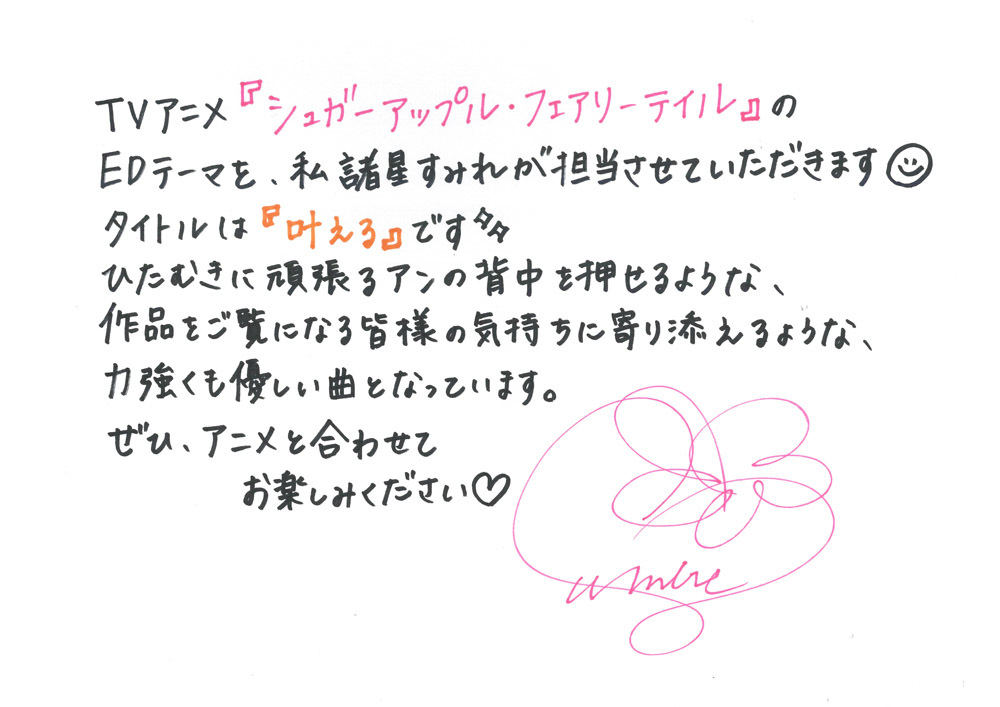 TVアニメ『シュガーアップル・フェアリーテイル』の
EDテーマを、私諸星すみれが担当させていただきます
タイトルは『叶える』です
ひたむきに頑張るアンの背中を押せるような、
作品をご覧になる皆様の気持ちに寄り添えるような、
力強くも優しい曲となっています。
ぜひ、アニメと合わせて
お楽しみください♡